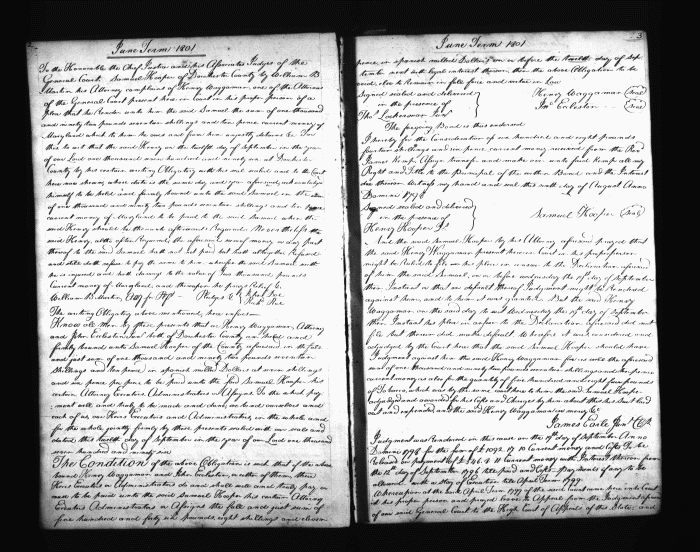 June Term 1801
To the Honourable the Chief Justice and his Associates Judges of the
General Court. Samuel Hooper of Dorchester County by William B
Martin his Attorney complains of Henry Waggaman one of the Attornies
of the General Court present here in Court in his proper person of a
plea that he render unto him the said Samuel the sum of one thousand
and ninety two pounds seventeen shillings and ten pence current money of
Maryland which to him he owes and from him unjustly detains &c. For
that to wit that the said Henry on the twelfth day of September in the year
of our Lord one thousand seven hundred and ninety six at Dorchester
County by his certain writing Obligatory with his seal sealed and to the Court
here now shewn whose date is the same day and year aforesaid acknowledged
himself to be held and firmly bound unto the said Samuel in the
of one thousand and ninety two pounds seventeen shillings and ten pence
current money of Maryland to be paid to the said Samuel when the
said Henry should be thereunto afterwards Required. Nevertheless the
said Henry, altho often Required, the aforesaid sum of money or any part
thereof to the said Samuel hath not paid but hath altogether Refused
and still doth refuse to pay the same to him wherefore the said Samuel saith
he is injured and hath damage to the value of two thousand pounds
Current money of Maryland, and therefore he brings Suit &c.
William B Martin, Atty for Plff - Pledges &c John Doe
Richd Roe
The writing Obligatory above mentioned, here follows
Know all Men by these presents that we Henry Waggaman, Attorney
and John Eccleston both of Dorchester County are held and
firmly bound unto Samuel Hooper of the County aforesaid in the full
and just sum of one thousand and ninety two pounds seventeen
shillings and ten pence in spanish milled Dollars at seven shillings
and six pence per piece to be paid unto the said Samuel Hooper his
certain Attorney Executors Administrators or Assigns To the which pay-
ment well and truly to be made and done, we bind ourselves and
each of us, our Heirs Executors and Administrators, in the whole and
for the whole jointly firmly by these presents sealed with our seals and
dated this twelfth day of September in the year of our Lord one thousand
seven hundred and ninety six
The Condition of the above Obligation is such that if the above
bound Henry Waggaman and John Eccleston or either of them, their
Heirs Executors or Administrators do and shall well and truly pay or
cause to be paid unto the said Samuel Hooper his certain Attorney
Executors Administrators or Assigns the full and just sum of
five hundred and forty six pounds, eight shillings and eleven
3
June Term 1801
pence in spanish milled Dollars on or before the twelfth day of Sep-
tember next with legal interest thereon then the above Obligation to be
void, else to Remain in full force and virtue in Law
Signed sealed and delivered
in the presence of
Henry Waggaman (Seal)
Jno Eccleston (Seal)
The foregoing Bond is thus endorsed
I hereby for the Consideration of six hundred and eight pounds
fourteen shillings and six pence current money received from the Rev
James Kemp Assign transfer and make over unto said Kemp all my
Right and Title to the Principal of the within Bond and the Interest
due thereon Witness my hand and seal this ninth day of August Anno
Domini 1798
Signed sealed and delivered
in the presence of
Samuel Hooper (Seal)
Henry Hooper Jr
And the said Samuel Hooper by his Attorney aforesaid prayed that
the said Henry Waggaman present here in Court in his proper person
might be Ruled to
of him the said Samuel, on or before wednesday the 19th day of September
then Instant or that on default thereof Judgment might be Rendered
against him, and to him it was granted. But the said Henry
Waggaman, on the said day to wit Wednesday the 19th day of September
then Instant his plea in answer to the Declaration aforesaid did not
put but thereof made default Therefore it was considered and
adjudged by the Court here that the said Samuel Hooper should have
Judgment against him the said Henry Waggaman for as well the aforesaid
sum of one thousand and ninety two pounds seventeen shillings and ten pence
current money as also for the quantity of five hundred and eight four pounds
of Tobacco, which was by the same Court here to him the said Samuel Hooper
adjudged and awarded for his Costs and Charges by him about his Suit laid
out and expended and the said Henry Waggaman in mercy &c
James Earle Junr Clk
Judgment was Rendered in this cause on the 19th day of September Anno
Domini 1798 for the sum of £ 1092. 17. 10 current money and Costs To be
Released on payment of £ 546. 8. 11 current money with Interest thereon from
the 12th day of September 1796 till paid and Costs. Payments if any to be
allowed. with a stay of Execution till April Term 1799
Whereupon at the said April Term 1799 of the said Court came here into Court
in his proper person and prayed leave to Appeal from the Judgment aforesaid
of our said General Court to the High Court of Appeals of this State, and